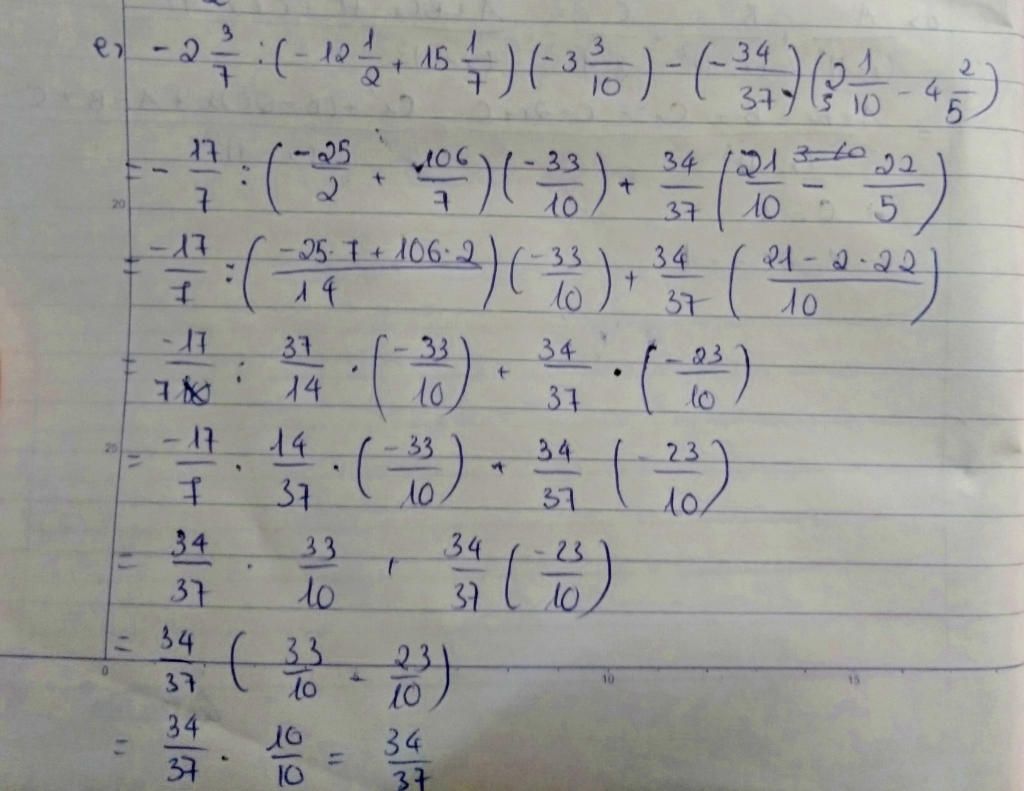 e) - 2 3/7 : (- 12 1/2 + 15 1/7) (- 3 3/10) - (- 34/37) (2 1/10 - 4 2/5)
= - 17/7 : (-25/2 + 106/7) (-33/10) + 34/37 (21/10 - 22/5)
= -17/7 : ((-25·7 + 106·2)/14) (-33/10) + 34/37 ((21 - 2·22)/10)
= -17/7 : 37/14 · (-33/10) + 34/37 · (-23/10)
= -17/7 · 14/37 · (-33/10) + 34/37 (-23/10)
= 34/37 · 33/10 + 34/37 (-23/10)
= 34/37 (33/10 - 23/10)
= 34/37 · 10/10 = 34/37